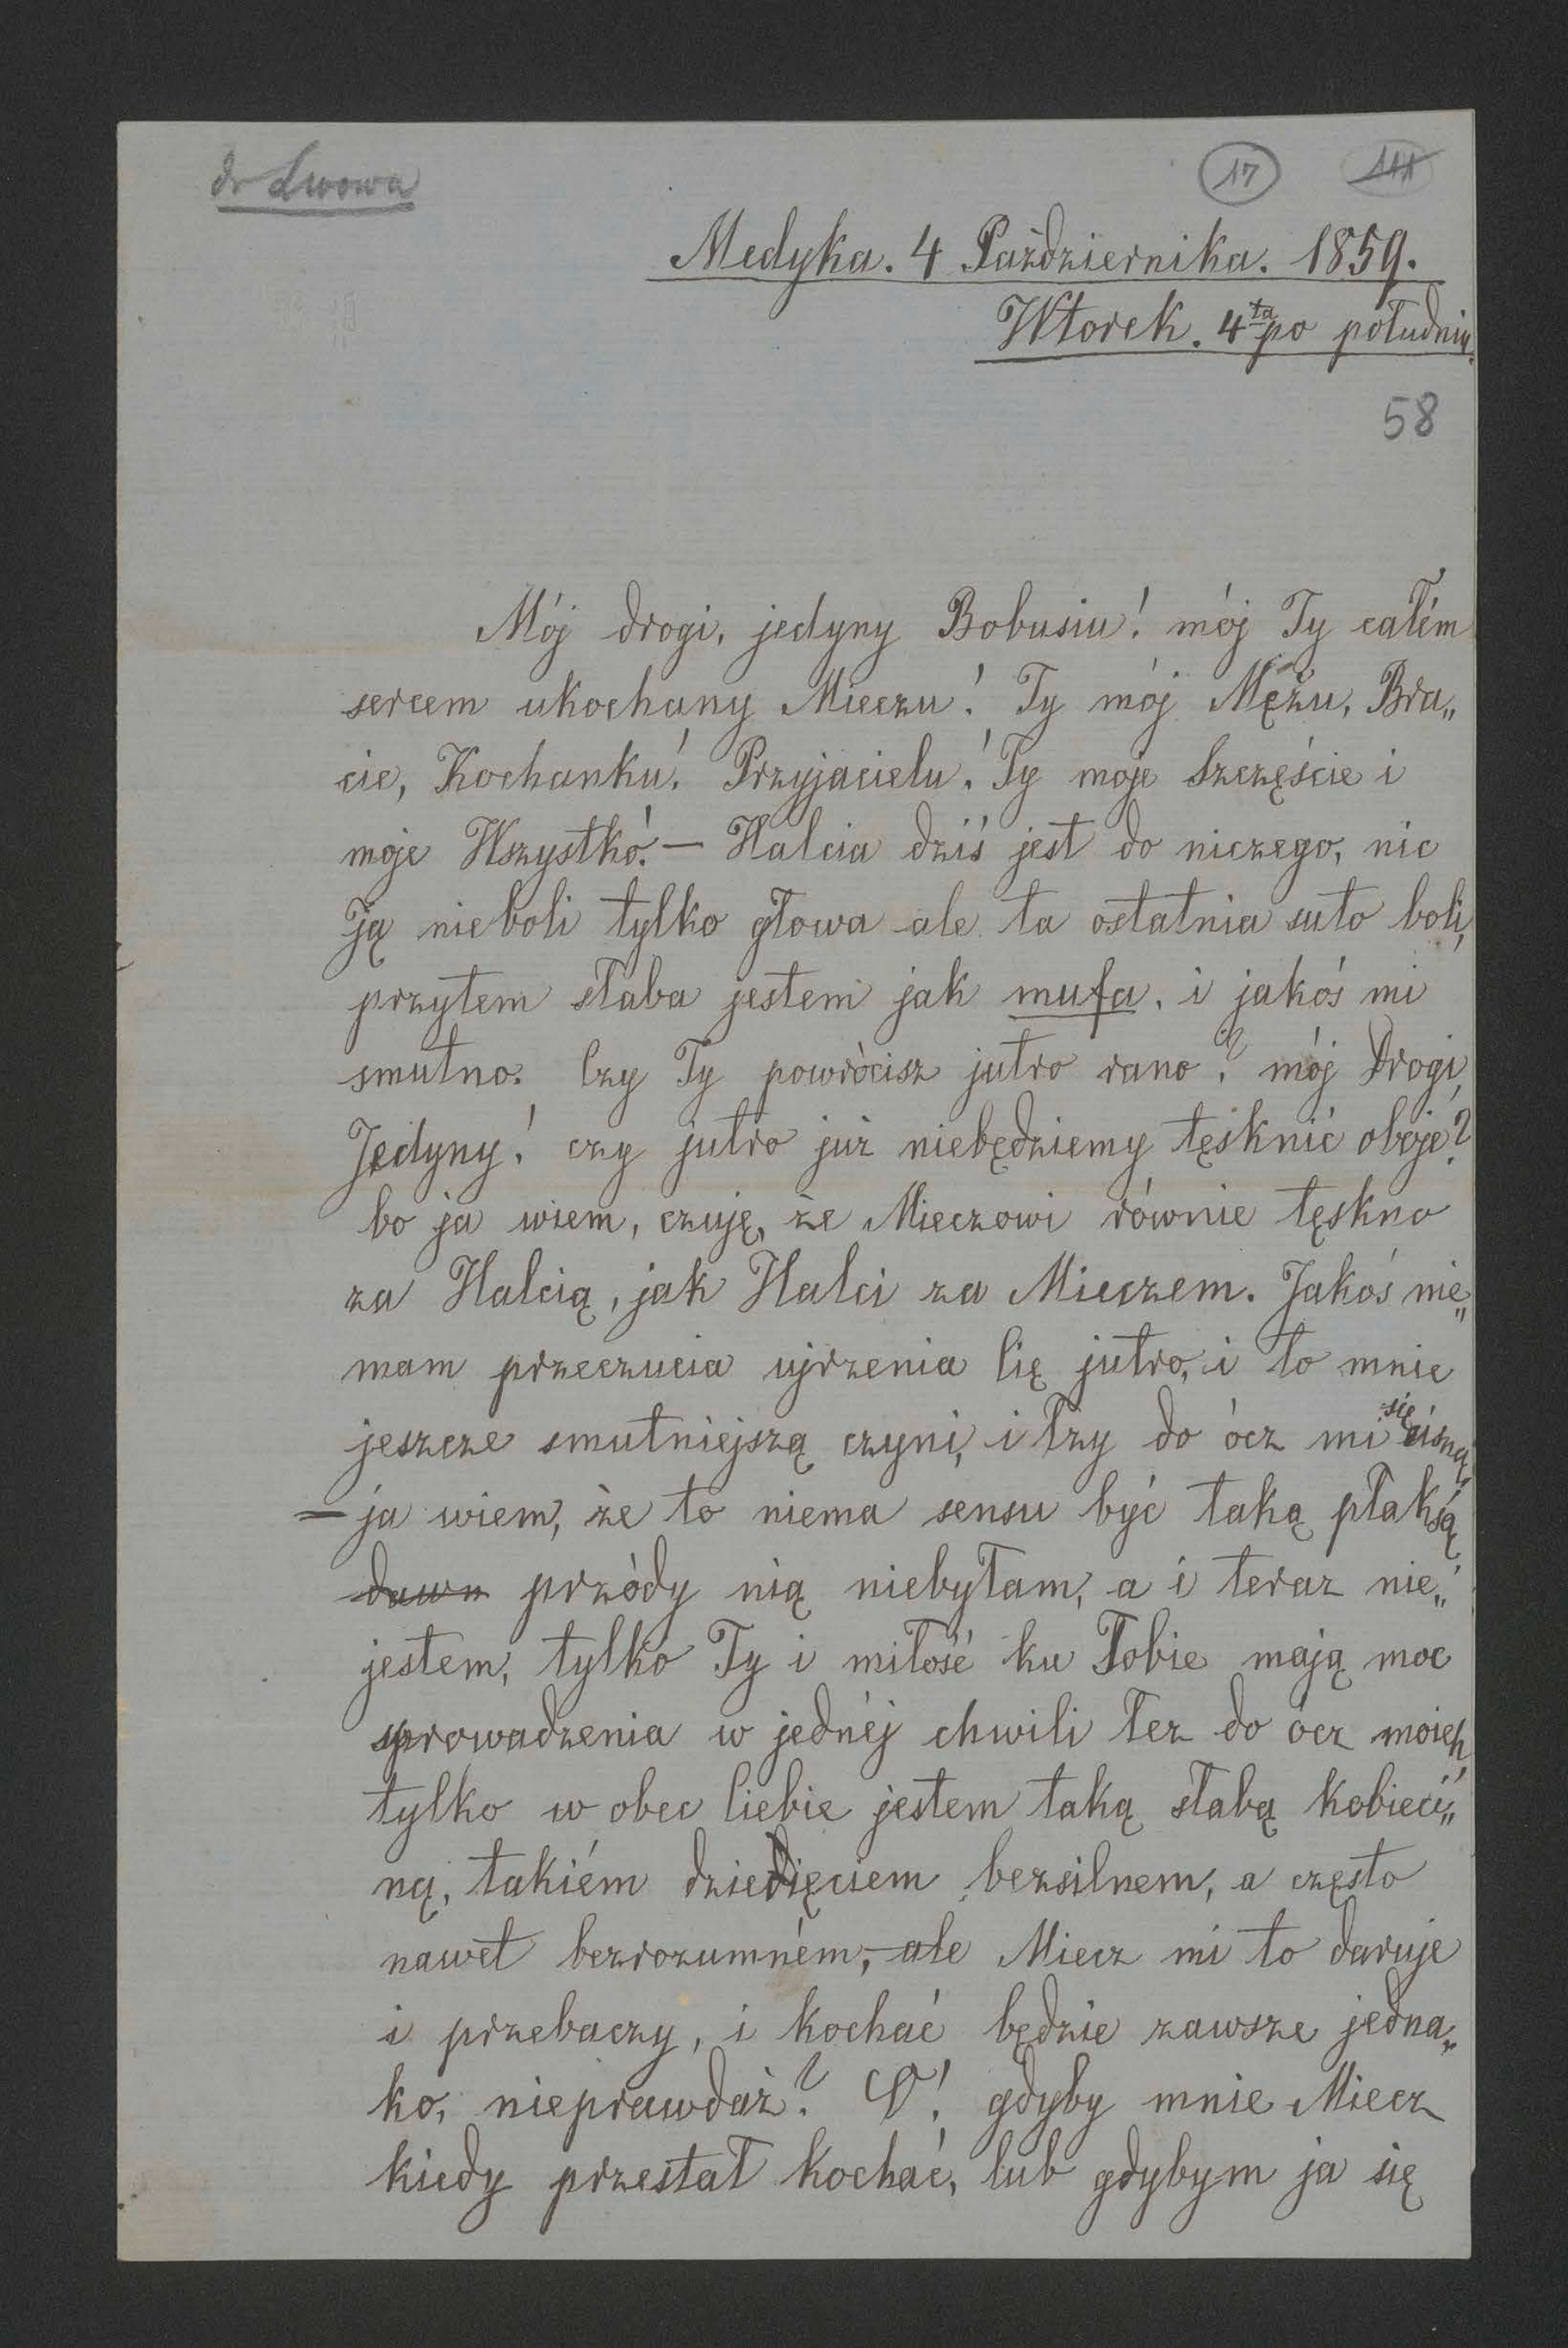 do Lwowa
17 111
Medyka. 4 Października. 1859.
Wtorek. 4ta po południu.
58
Mój drogi, jedyny Bobusiu! mój Ty całém
sercem ukochany Mieczu! Ty mój Mężu, Bra„
cie, Kochanku! Przyjacielu! Ty moje Szczęście i
moje Wszystko! — Halcia dziś jest do niczego, nic
Ją nieboli tylko głowa ale ta ostatnia suto boli,
przytem słaba jestem jak mufa, i jakoś mi
smutno. Czy Ty powrócisz jutro rano? mój Drogi,
Jedyny! czy jutro już niebędziemy tęsknić oboje?
bo ja wiem, czuję, że Mieczowi równie tęskno
za Halcią, jak Halci za Mieczem. Jakoś nie„
mam przeczucia ujrzenia Cię jutro, i to mnie
jeszcze smutniejszą czyni, i łzy do ócz mi się cisną,
— ja wiem, że to niema sensu być taką płaksą
dawn przódy nią niebyłam, a i teraz nie„
jestem, tylko Ty i miłość ku Tobie mają moc
sprowadzenia w jednéj chwili łez do ócz moich,
tylko w obec Ciebie jestem taką słabą kobieci„
ną, takiém dziecięciem bezsilnem, a często
nawet bezrozumném, — ale Miecz mi to daruje
i przebaczy, i kochać będzie zawsze jedna„
ko, nieprawdaż? O! gdyby mnie Miecz
kiedy przestał kochać, lub gdybym ja się